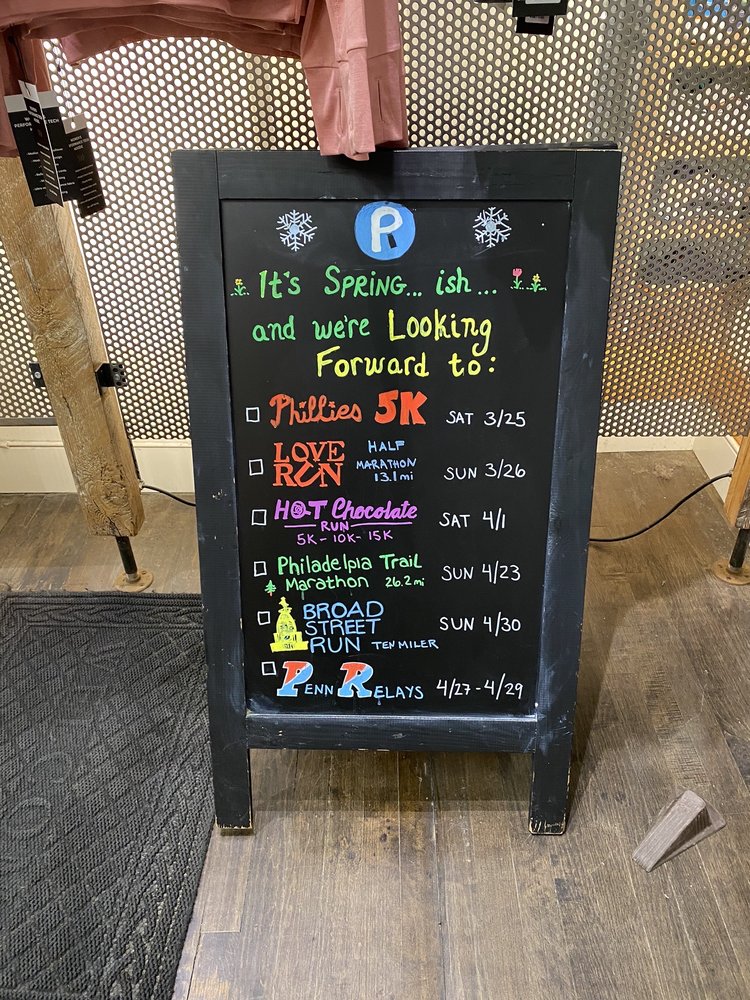 R
It's SPRING... ish...
and we're Looking
Forward to:
Phillies 5K SAT 3/25
LOVE RUN HALF MARATHON 13.1 mi SUN 3/26
HOT Chocolate SAT 4/1
RUN
5K - 10K - 15K
Philadelpia Trail
Marathon 26.2 mi SUN 4/23
BROAD
STREET SUN 4/30
RUN TEN MILER
PENN RELAYS 4/27 - 4/29